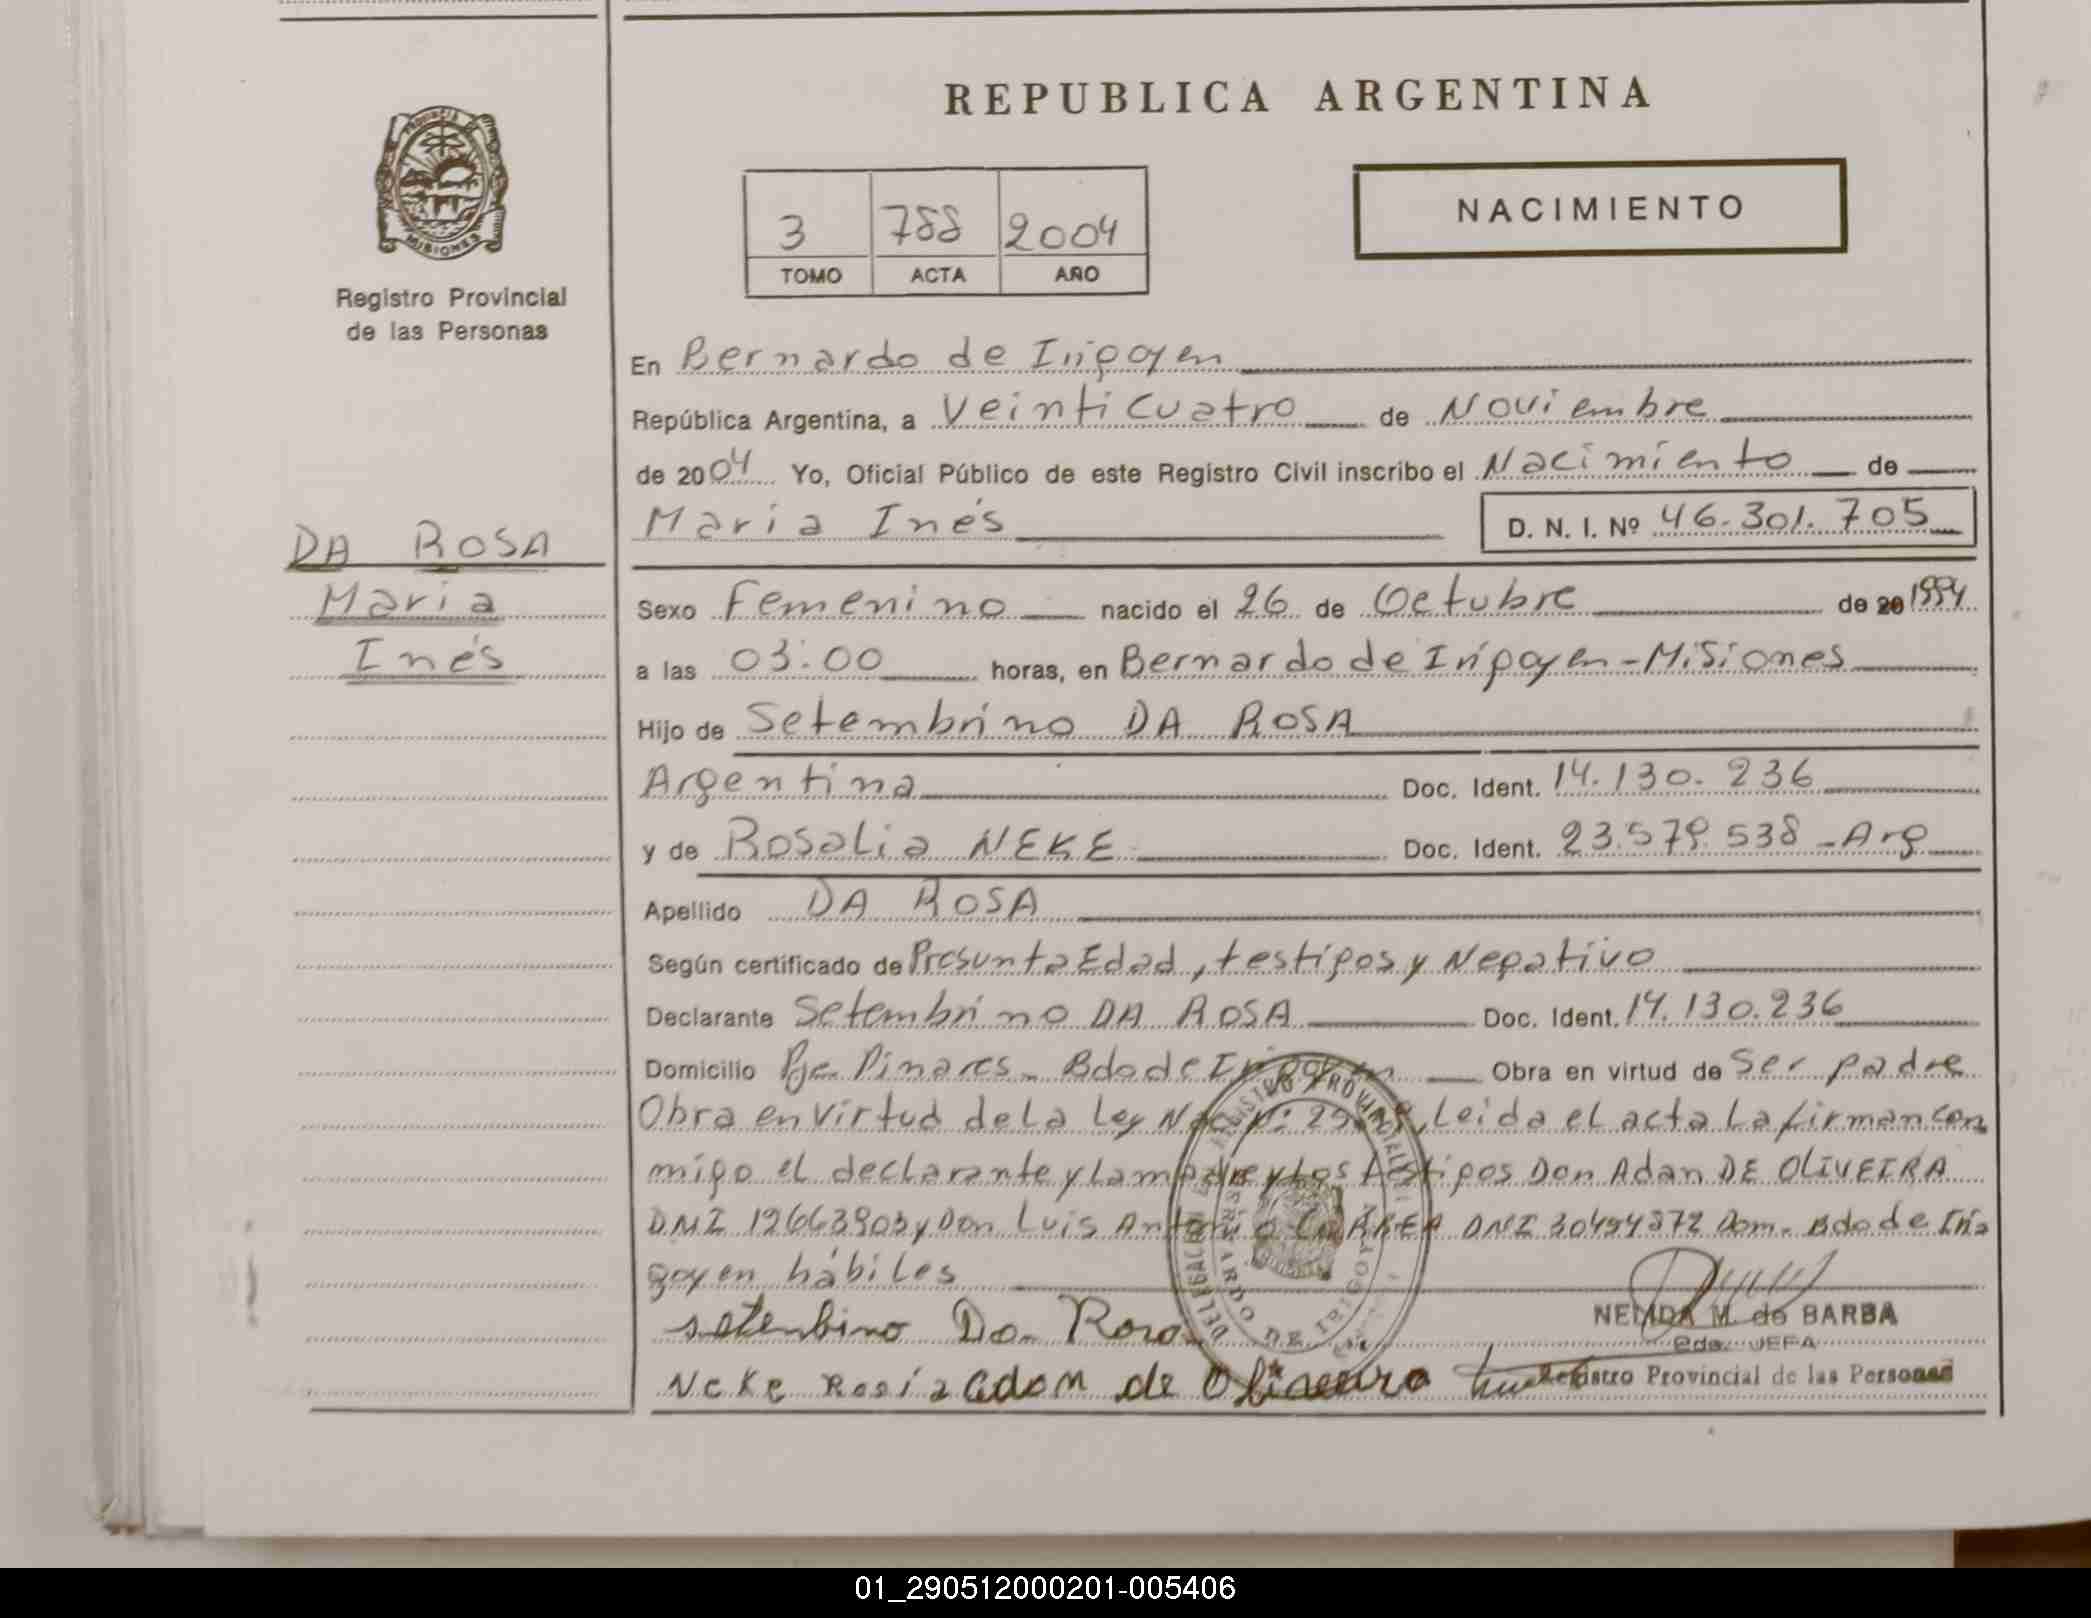 REPUBLICA ARGENTINA
PROVINCIA DE
MISIONES
Registro Provincial
de las Personas
3 788 2004
TOMO ACTA AÑO
NACIMIENTO
En Bernardo de Irigoyen
República Argentina, a Veinticuatro de Noviembre
de 2004 Yo, Oficial Público de este Registro Civil inscribo el Nacimiento de
DA ROSA
Maria
Inés
Maria Inés D. N. I. Nº 46.301.705
Sexo Femenino nacido el 26 de Octubre de 20 1994
a las 03:00 horas, en Bernardo de Irigoyen - Misiones
Hijo de Setembrino DA ROSA
Argentina Doc. Ident. 14.130.236
y de Rosalia NEKE Doc. Ident. 23.579.538 - Arg
Apellido DA ROSA
Según certificado de Presunta Edad, testigos y Negativo
Declarante Setembrino DA ROSA Doc. Ident. 14.130.236
Domicilio Pje. Pinares - Bdo de Irigoyen Obra en virtud de Ser padre
Obra en virtud de la Ley Nac Nº: Leida el acta la firman con
migo el declarante y la madre y los testigos Don Adan DE OLIVEIRA
DNI 12663903 y Don Luis Antonio CORREA DNI 30494272 Dom. Bdo de Iri
goyen hábiles
DELEGACION REGISTRO PROVINCIAL
BERNARDO DE IRIGOYEN
setenbino Da Rosa
NELIDA M. de BARBA
2da. JEFA
Neke Rosía adam de Oliveira Registro Provincial de las Personas
01_290512000201-005406